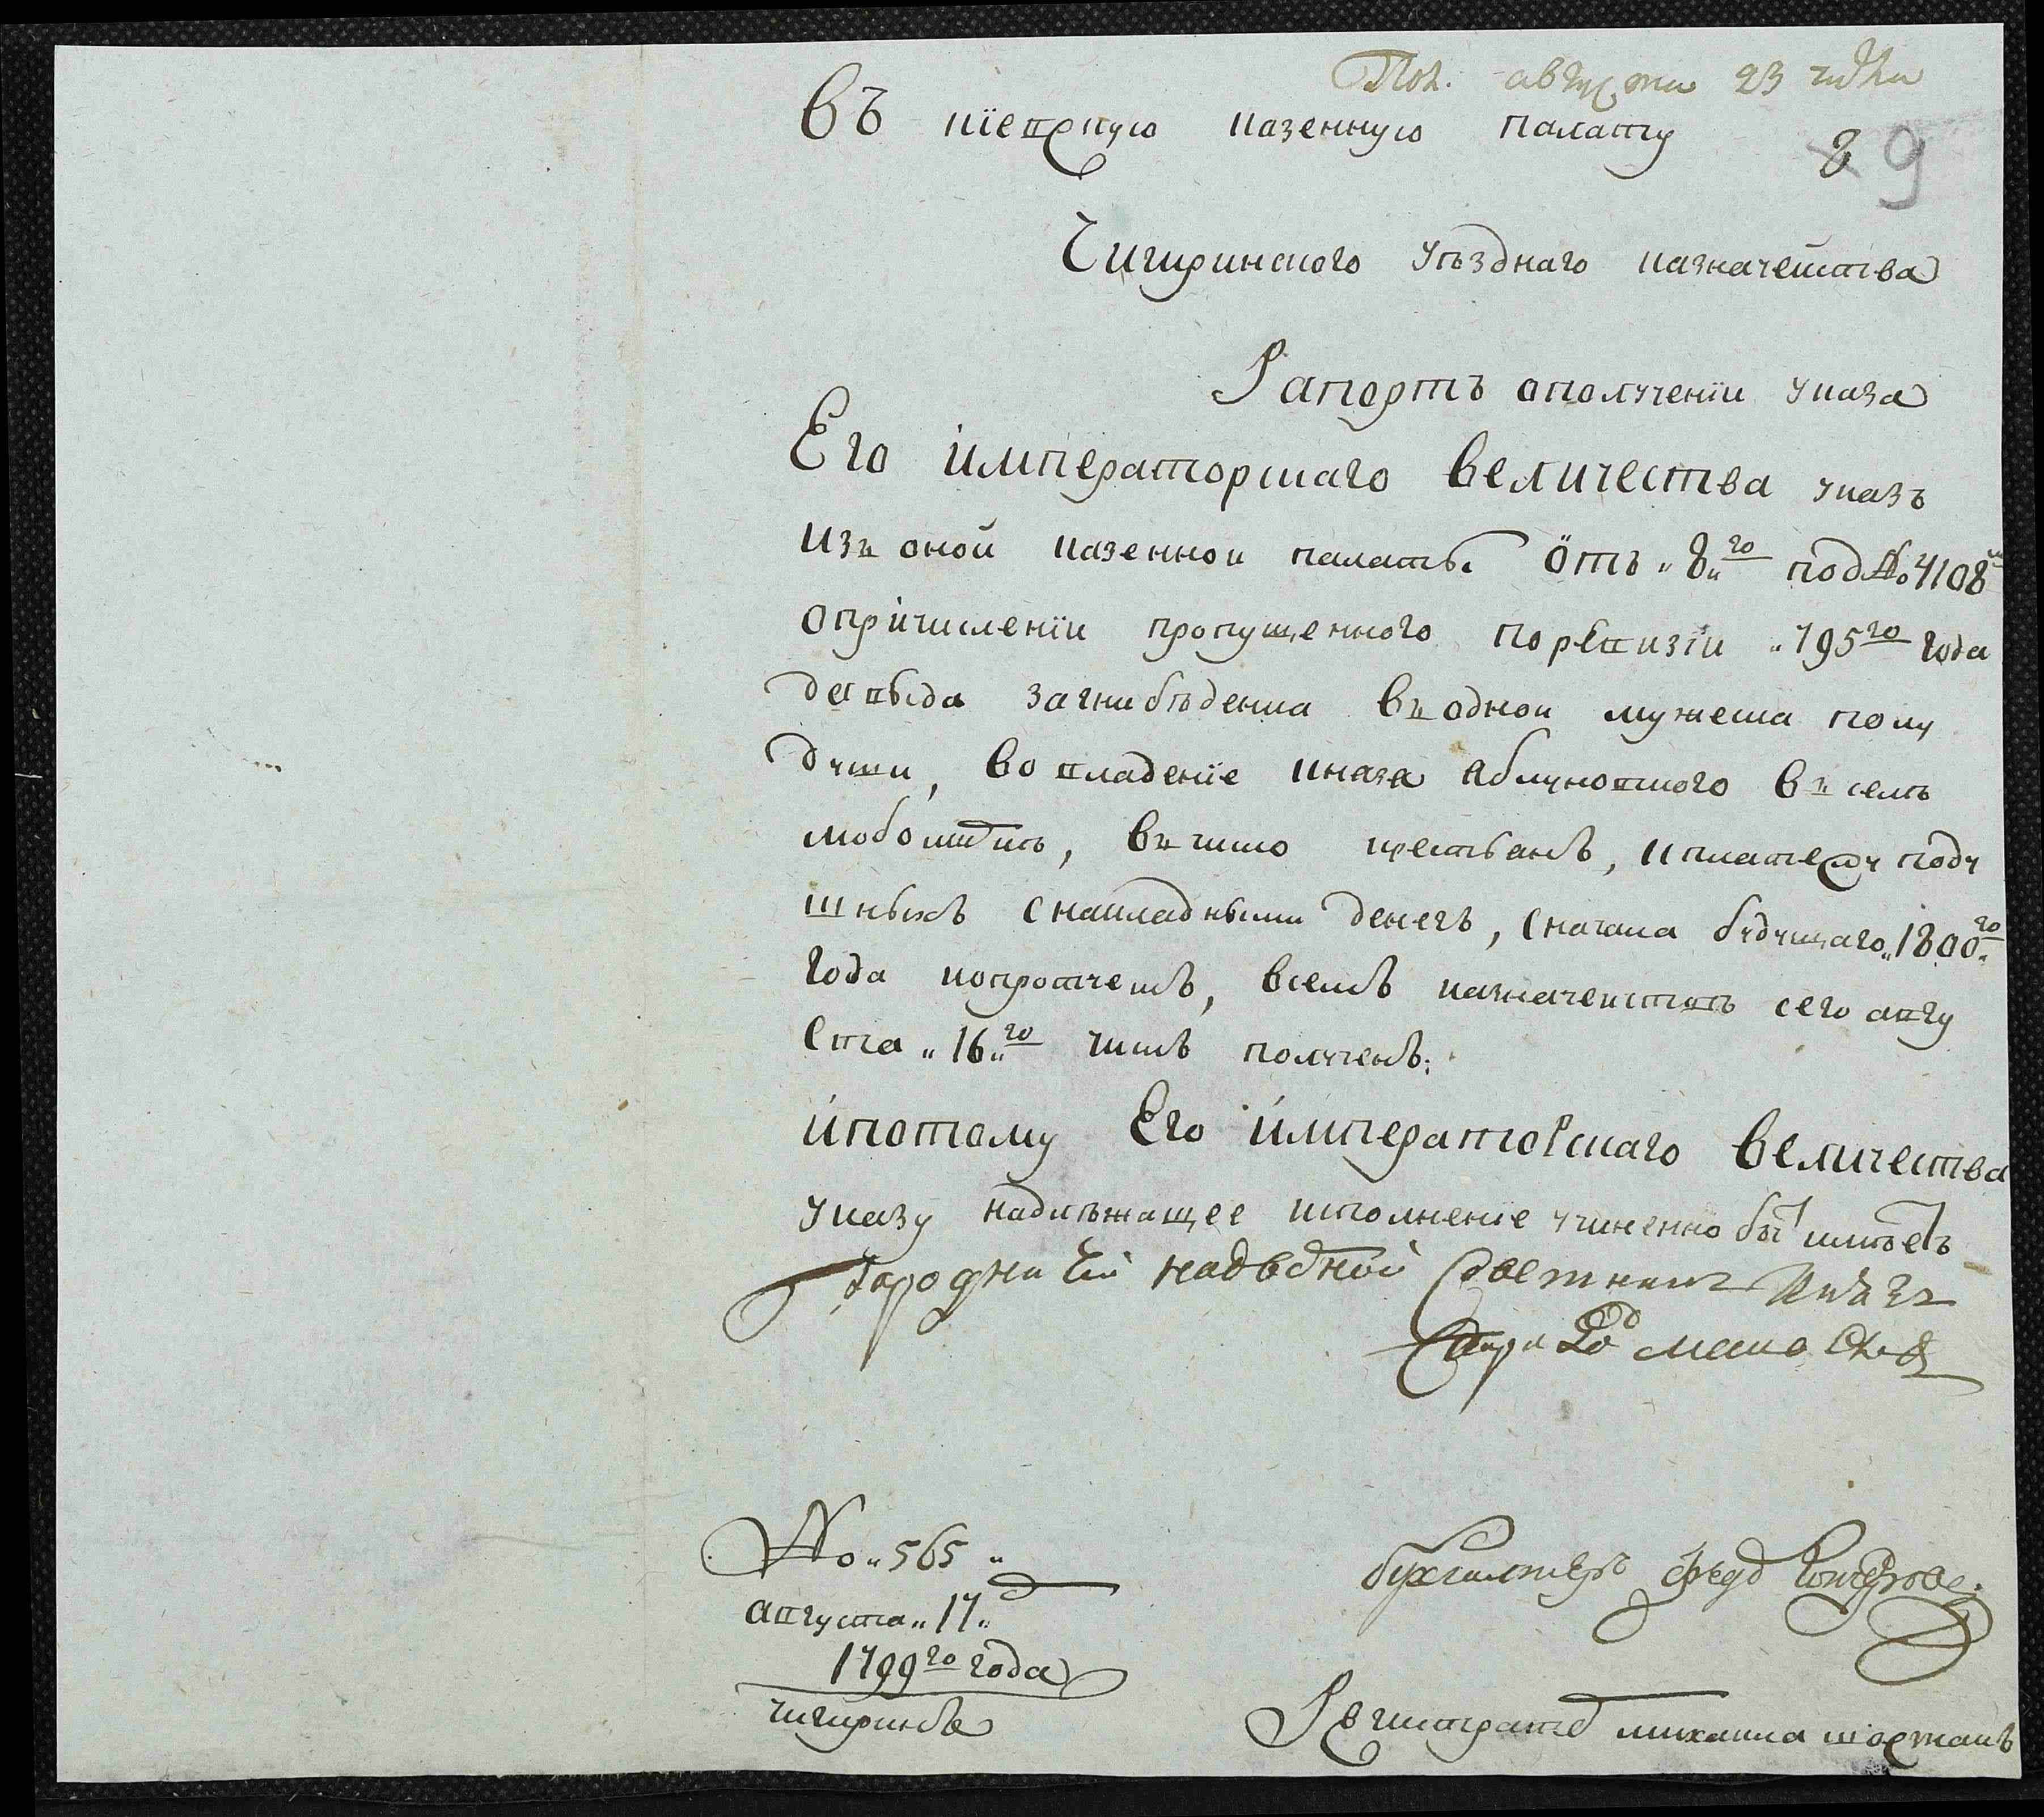 Пол. августа 23 числа
Въ киевскую казенную палату
8 9
Чигиринского уѣзднаго казначейства
Рапортъ ополученіи указа
Его императорскаго величества указъ
изъ оной казенной палаты отъ „8„го под№ 4108м
опричисленіи пропущенного поревизіи „795го года
давыда загнибѣденка въ одной мужеска полу
души, во владение князя яблуновского въ селѣ
любомиркѣ, въ число крестьянъ, иплатежу поду
шныхъ снакладными денегъ, сначала будущаго„1800„го
года копротчемъ, всемъ казначействѣ сего авгу
ста „16„го числъ полученъ.
ипотому Его императорскаго величества
указу надлѣжащее исполнение учиненно быт имѣетъ
Городничий надворной Советникъ
№ „565„
августа „17„
1799го года
чигиринъ
бухгалтеръ федор
Регистраторъ михаила